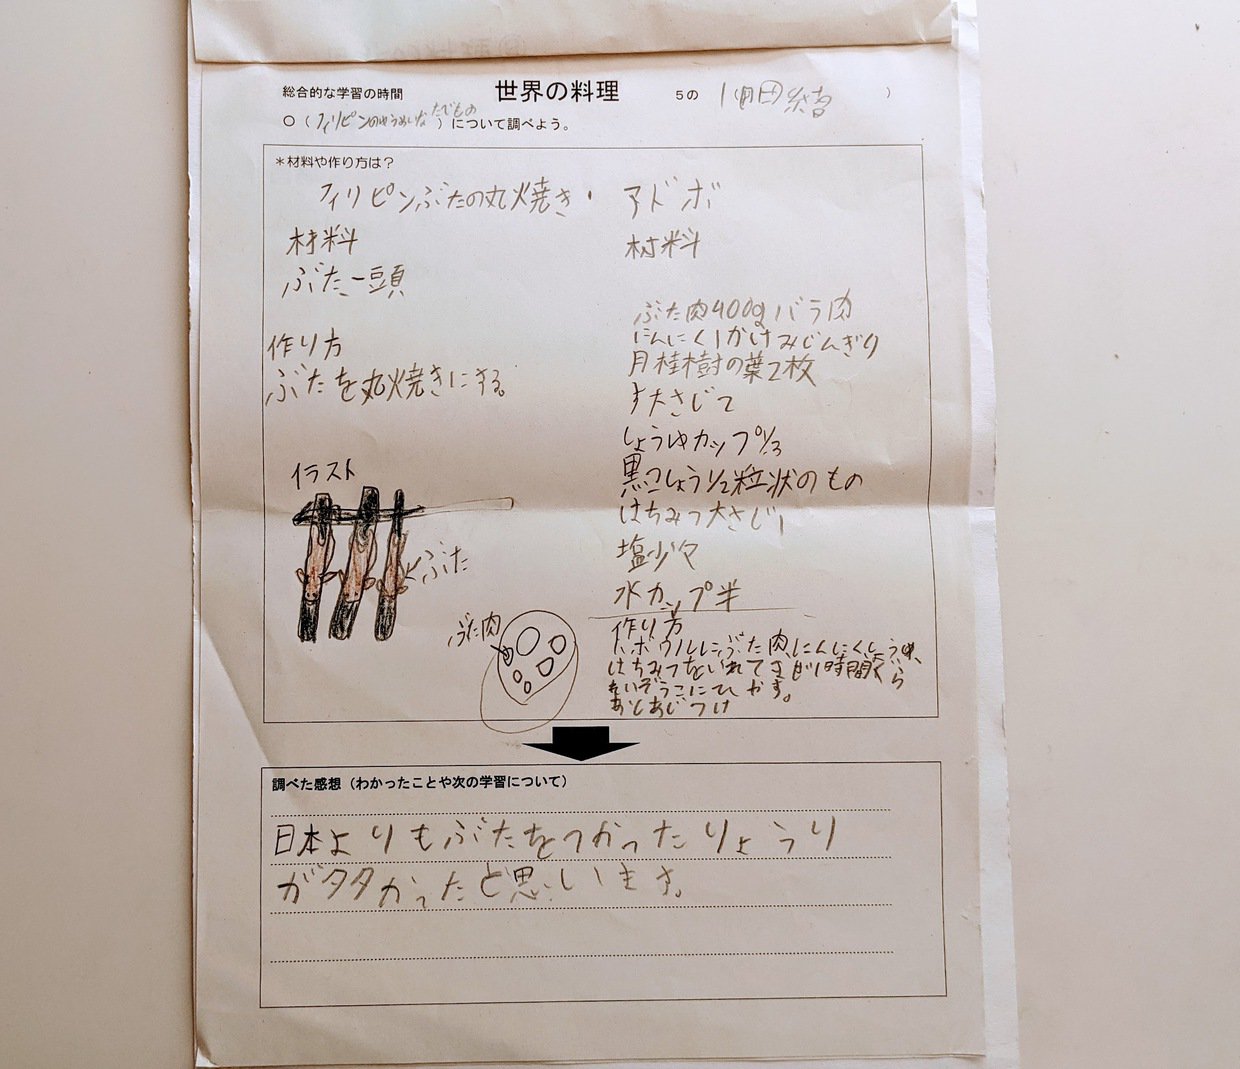 総合的な学習の時間 世界の料理 5の 1 )
○(フィリピンのゆうめいなたべもの)について調べよう。
*材料や作り方は?
フィリピンぶたの丸焼き・
材料
ぶた一頭
作り方
ぶたを丸焼きにする。
イラスト
ぶた
ぶた肉
アドボ
材料
ぶた肉400gバラ肉
にんにく1かけみじんぎり
月桂樹の葉2枚
す大さじ2
しょうゆカップ1/3
黒こしょう1/2粒状のもの
はちみつ大さじ1
塩少々
水カップ半
作り方
1、ボウルにぶた肉にんにくしょうゆ、
はちみつをいれてまぜ1時間くら
れいぞうこにひやす。
あとあじつけ
調べた感想(わかったことや次の学習について)
日本よりもぶたをつかったりょうり
がタタかったと思います。